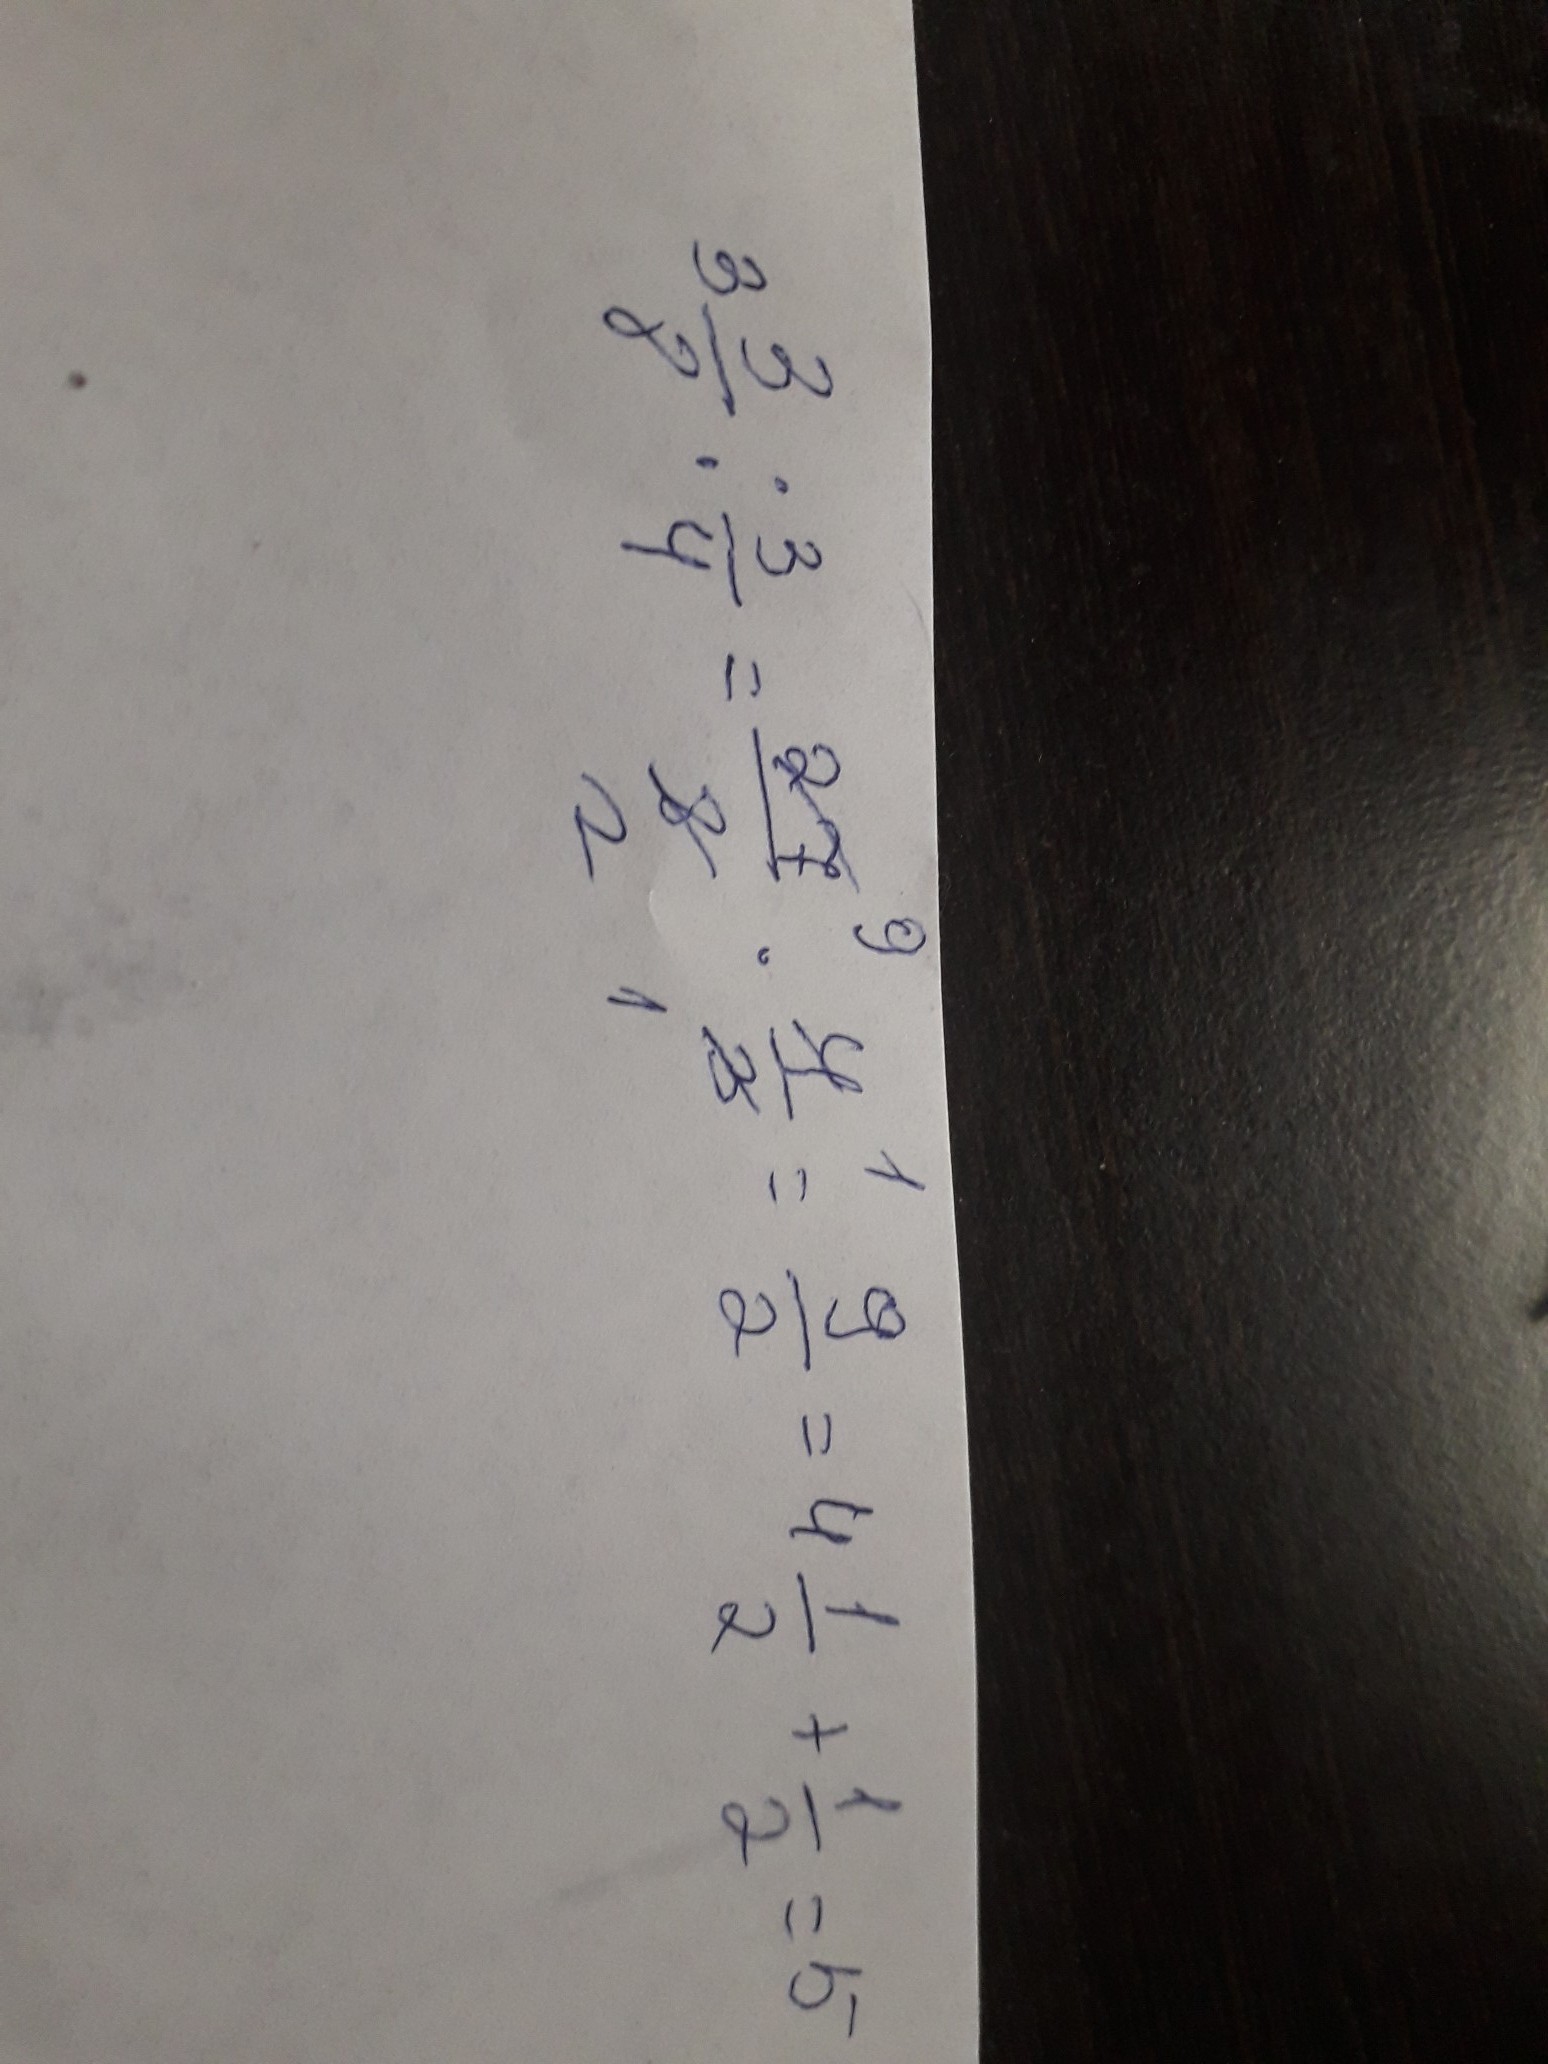 3 3/8 : 3/4 = 27/8 9 2 · 4/3 1 1 = 9/2 = 4 1/2 + 1/2 = 5